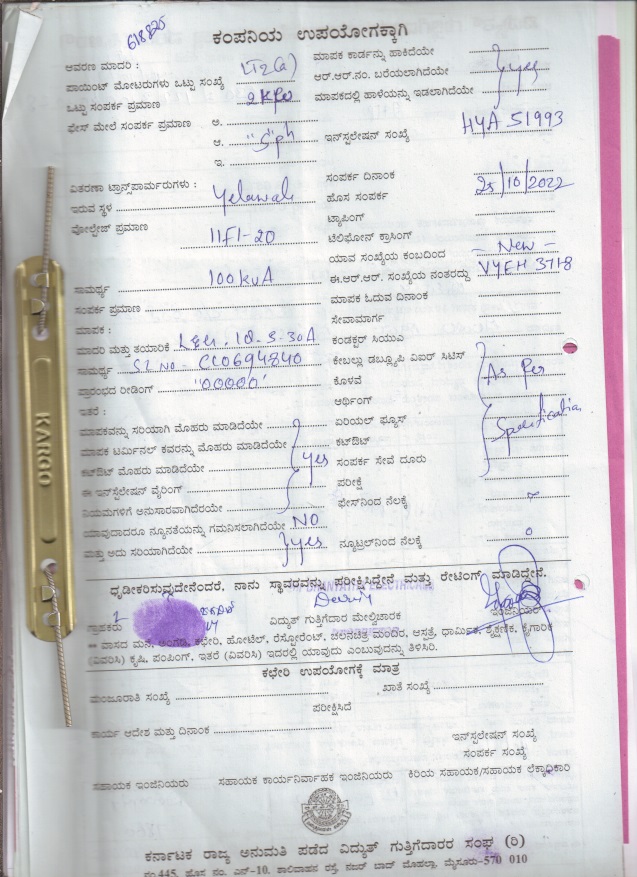 618825
ಕಂಪನಿಯ ಉಪಯೋಗಕ್ಕಾಗಿ
ಆವರಣ ಮಾದರಿ : LT2(a) ಮಾಪಕ ಕಾರ್ಡನ್ನು ಹಾಕಿದೆಯೇ
ಪಾಯಿಂಟ್ ಮೋಟರುಗಳು ಒಟ್ಟು ಸಂಖ್ಯೆ ಆರ್.ಆರ್.ನಂ. ಬರೆಯಲಾಗಿದೆಯೇ yes
ಒಟ್ಟು ಸಂಪರ್ಕ ಪ್ರಮಾಣ 2 ಮಾಪಕದಲ್ಲಿ ಹಾಳೆಯನ್ನು ಇಡಲಾಗಿದೆಯೇ
ಫೇಸ್ ಮೇಲೆ ಸಂಪರ್ಕ ಪ್ರಮಾಣ ಅ.
ಆ. "S" ph ಇನ್‌ಸ್ಟಲೇಷನ್ ಸಂಖ್ಯೆ HYA 51993
ಇ.
ವಿತರಣಾ ಟ್ರಾನ್ಸ್‌ಫಾರ್ಮರುಗಳು : ಸಂಪರ್ಕ ದಿನಾಂಕ 25/10/2022
ಇರುವ ಸ್ಥಳ Yelawala ಹೊಸ ಸಂಪರ್ಕ
ಟ್ಯಾಪಿಂಗ್
ವೋಲ್ಟೇಜ್ ಪ್ರಮಾಣ 11F1-20 ಟೆಲಿಫೋನ್ ಕ್ರಾಸಿಂಗ್
ಯಾವ ಸಂಖ್ಯೆಯ ಕಂಬದಿಂದ - New -
ಸಾಮರ್ಥ್ಯ 100 kVA ಈ.ಆರ್.ಆರ್. ಸಂಖ್ಯೆಯ ನಂತರದ್ದು VYEH 3718
ಸಂಪರ್ಕ ಪ್ರಮಾಣ ಮಾಪಕ ಓದುವ ದಿನಾಂಕ
ಮಾಪಕ : ಸೇವಾಮಾರ್ಗ
ಮಾದರಿ ಮತ್ತು ತಯಾರಿಕೆ ಕಂಡಕ್ಟರ್ ಸಿಯುಎ
ಸಾಮರ್ಥ್ಯ Sl No - CC0694840 ಕೇಬಲ್ಲು ಡಬ್ಲ್ಯೂಪಿ ವಿಐರ್ ಸಿಟಿಸ್
ಪ್ರಾರಂಭದ ರೀಡಿಂಗ್ "00000" ಕೊಳವೆ As Per
ಇತರೆ : ಅರ್ಥಿಂಗ್
ಮಾಪಕವನ್ನು ಸರಿಯಾಗಿ ಮೊಹರು ಮಾಡಿದೆಯೇ ಏರಿಯಲ್ ಫ್ಯೂಸ್ Specification
ಮಾಪಕ ಟರ್ಮಿನಲ್ ಕವರನ್ನು ಮೊಹರು ಮಾಡಿದೆಯೇ ಕಟ್‌ಔಟ್
ಕಟ್‌ಔಟ್ ಮೊಹರು ಮಾಡಿದೆಯೇ yes ಸಂಪರ್ಕ ಸೇವೆ ದೂರು
ಈ ಇನ್‌ಸ್ಟಲೇಷನ್ ವೈರಿಂಗ್ ಪರೀಕ್ಷೆ
ನಿಯಮಗಳಿಗೆ ಅನುಸಾರವಾಗಿದೆಯೇ ಫೇಸ್‌ನಿಂದ ನೆಲಕ್ಕೆ
ಯಾವುದಾದರೂ ನ್ಯೂನತೆಯನ್ನು ಗಮನಿಸಲಾಗಿದೆಯೇ NO
ಮತ್ತು ಅದು ಸರಿಯಾಗಿದೆಯೇ yes ನ್ಯೂಟ್ರಲ್‌ನಿಂದ ನೆಲಕ್ಕೆ 0
ಧೃಡೀಕರಿಸುವುದೇನೆಂದರೆ, ನಾನು ಸ್ಥಾವರವನ್ನು ಪರೀಕ್ಷಿಸಿದ್ದೇನೆ ಮತ್ತು ರೇಟಿಂಗ್ ಮಾಡಿದ್ದೇನೆ.
ಗ್ರಾಹಕರು ವಿದ್ಯುತ್ ಗುತ್ತಿಗೆದಾರ ಮೇಲ್ವಿಚಾರಕ ಇಂಜಿನಿಯರ್
** ವಾಸದ ಮನೆ, ಅಂಗಡಿ, ಕಛೇರಿ, ಹೋಟೆಲ್, ರೆಸ್ಟೋರೆಂಟ್, ಚಲನಚಿತ್ರ ಮಂದಿರ, ಆಸ್ಪತ್ರೆ, ಧಾರ್ಮಿಕ, ಶೈಕ್ಷಣಿಕ, ಕೈಗಾರಿಕ
(ವಿವರಿಸಿ) ಕೃಷಿ, ಪಂಪಿಂಗ್, ಇತರೆ (ವಿವರಿಸಿ) ಇದರಲ್ಲಿ ಯಾವುದು ಎಂಬುವುದನ್ನು ತಿಳಿಸಿರಿ.
ಕಛೇರಿ ಉಪಯೋಗಕ್ಕೆ ಮಾತ್ರ
ಮಂಜೂರಾತಿ ಸಂಖ್ಯೆ ಖಾತೆ ಸಂಖ್ಯೆ
ಪರೀಕ್ಷಿಸಿದೆ
ಕಾರ್ಯ ಆದೇಶ ಮತ್ತು ದಿನಾಂಕ
ಇನ್‌ಸ್ಟಲೇಷನ್ ಸಂಖ್ಯೆ
ಸಂಪರ್ಕ ಸಂಖ್ಯೆ
ಸಹಾಯಕ ಇಂಜಿನಿಯರು ಸಹಾಯಕ ಕಾರ್ಯನಿರ್ವಾಹಕ ಇಂಜಿನಿಯರು ಕಿರಿಯ ಸಹಾಯಕ/ಸಹಾಯಕ ಲೆಕ್ಕಾಧಿಕಾರಿ
ಕರ್ನಾಟಕ ರಾಜ್ಯ ಅನುಮತಿ ಪಡೆದ ವಿದ್ಯುತ್ ಗುತ್ತಿಗೆದಾರರ ಸಂಘ (ರಿ)
ನಂ.445, ಹೊಸ ನಂ. ಎನ್-10, ಶಾಲಿವಾಹನ ರಸ್ತೆ, ನಜರ್ ಬಾದ್ ಮೊಹಲ್ಲಾ, ಮೈಸೂರು-570 010
KARGO